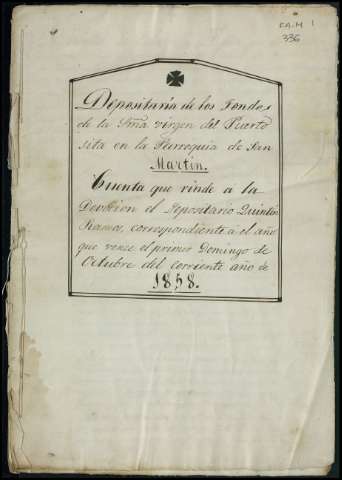 CA.M 1
336
Depositaría de los Fondos
de la Sma Virgen del Puerto
sita en la Parroquia de San
Martin.
Cuenta que rinde a la
Devocion el Depositario Quintin
Ramos, correspondiente á el año
que vence el primer Domingo de
Octubre del corriente año de
1858.